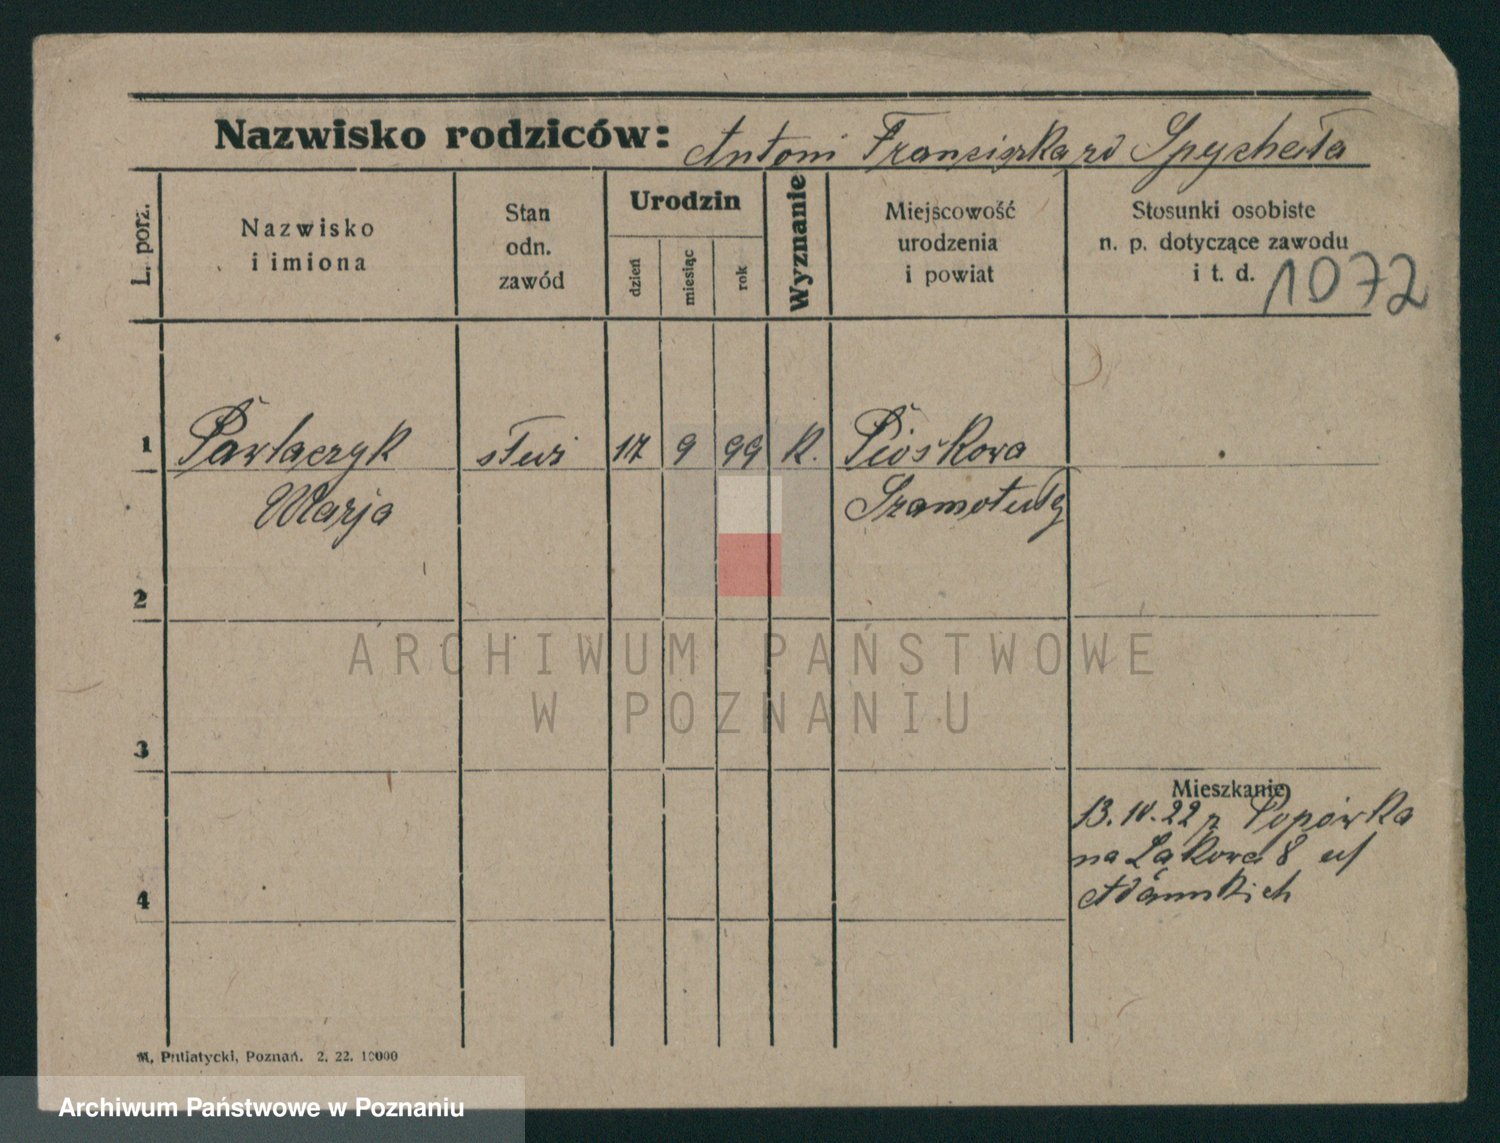 Nazwisko rodziców: Antoni Franciszka zd Spychała
L. porz.
Nazwisko
i imiona
Stan
odn.
zawód
Urodzin
dzień
miesiąc
rok
Wyznanie
Miejscowość
urodzenia
i powiat
Stosunki osobiste
n. p. dotyczące zawodu
i t. d.
1072
1 Pawlaczyk służ 17 9 99 k. Pioskowa
Marja Szamotuły
2
3
4
Mieszkanie
13.10.22 z Popówka
na Łąkowa 8 u/
Adamskich
ARCHIWUM PAŃSTWOWE
W POZNANIU
M. Putiatycki, Poznań. 2. 22. 10000
Archiwum Państwowe w Poznaniu